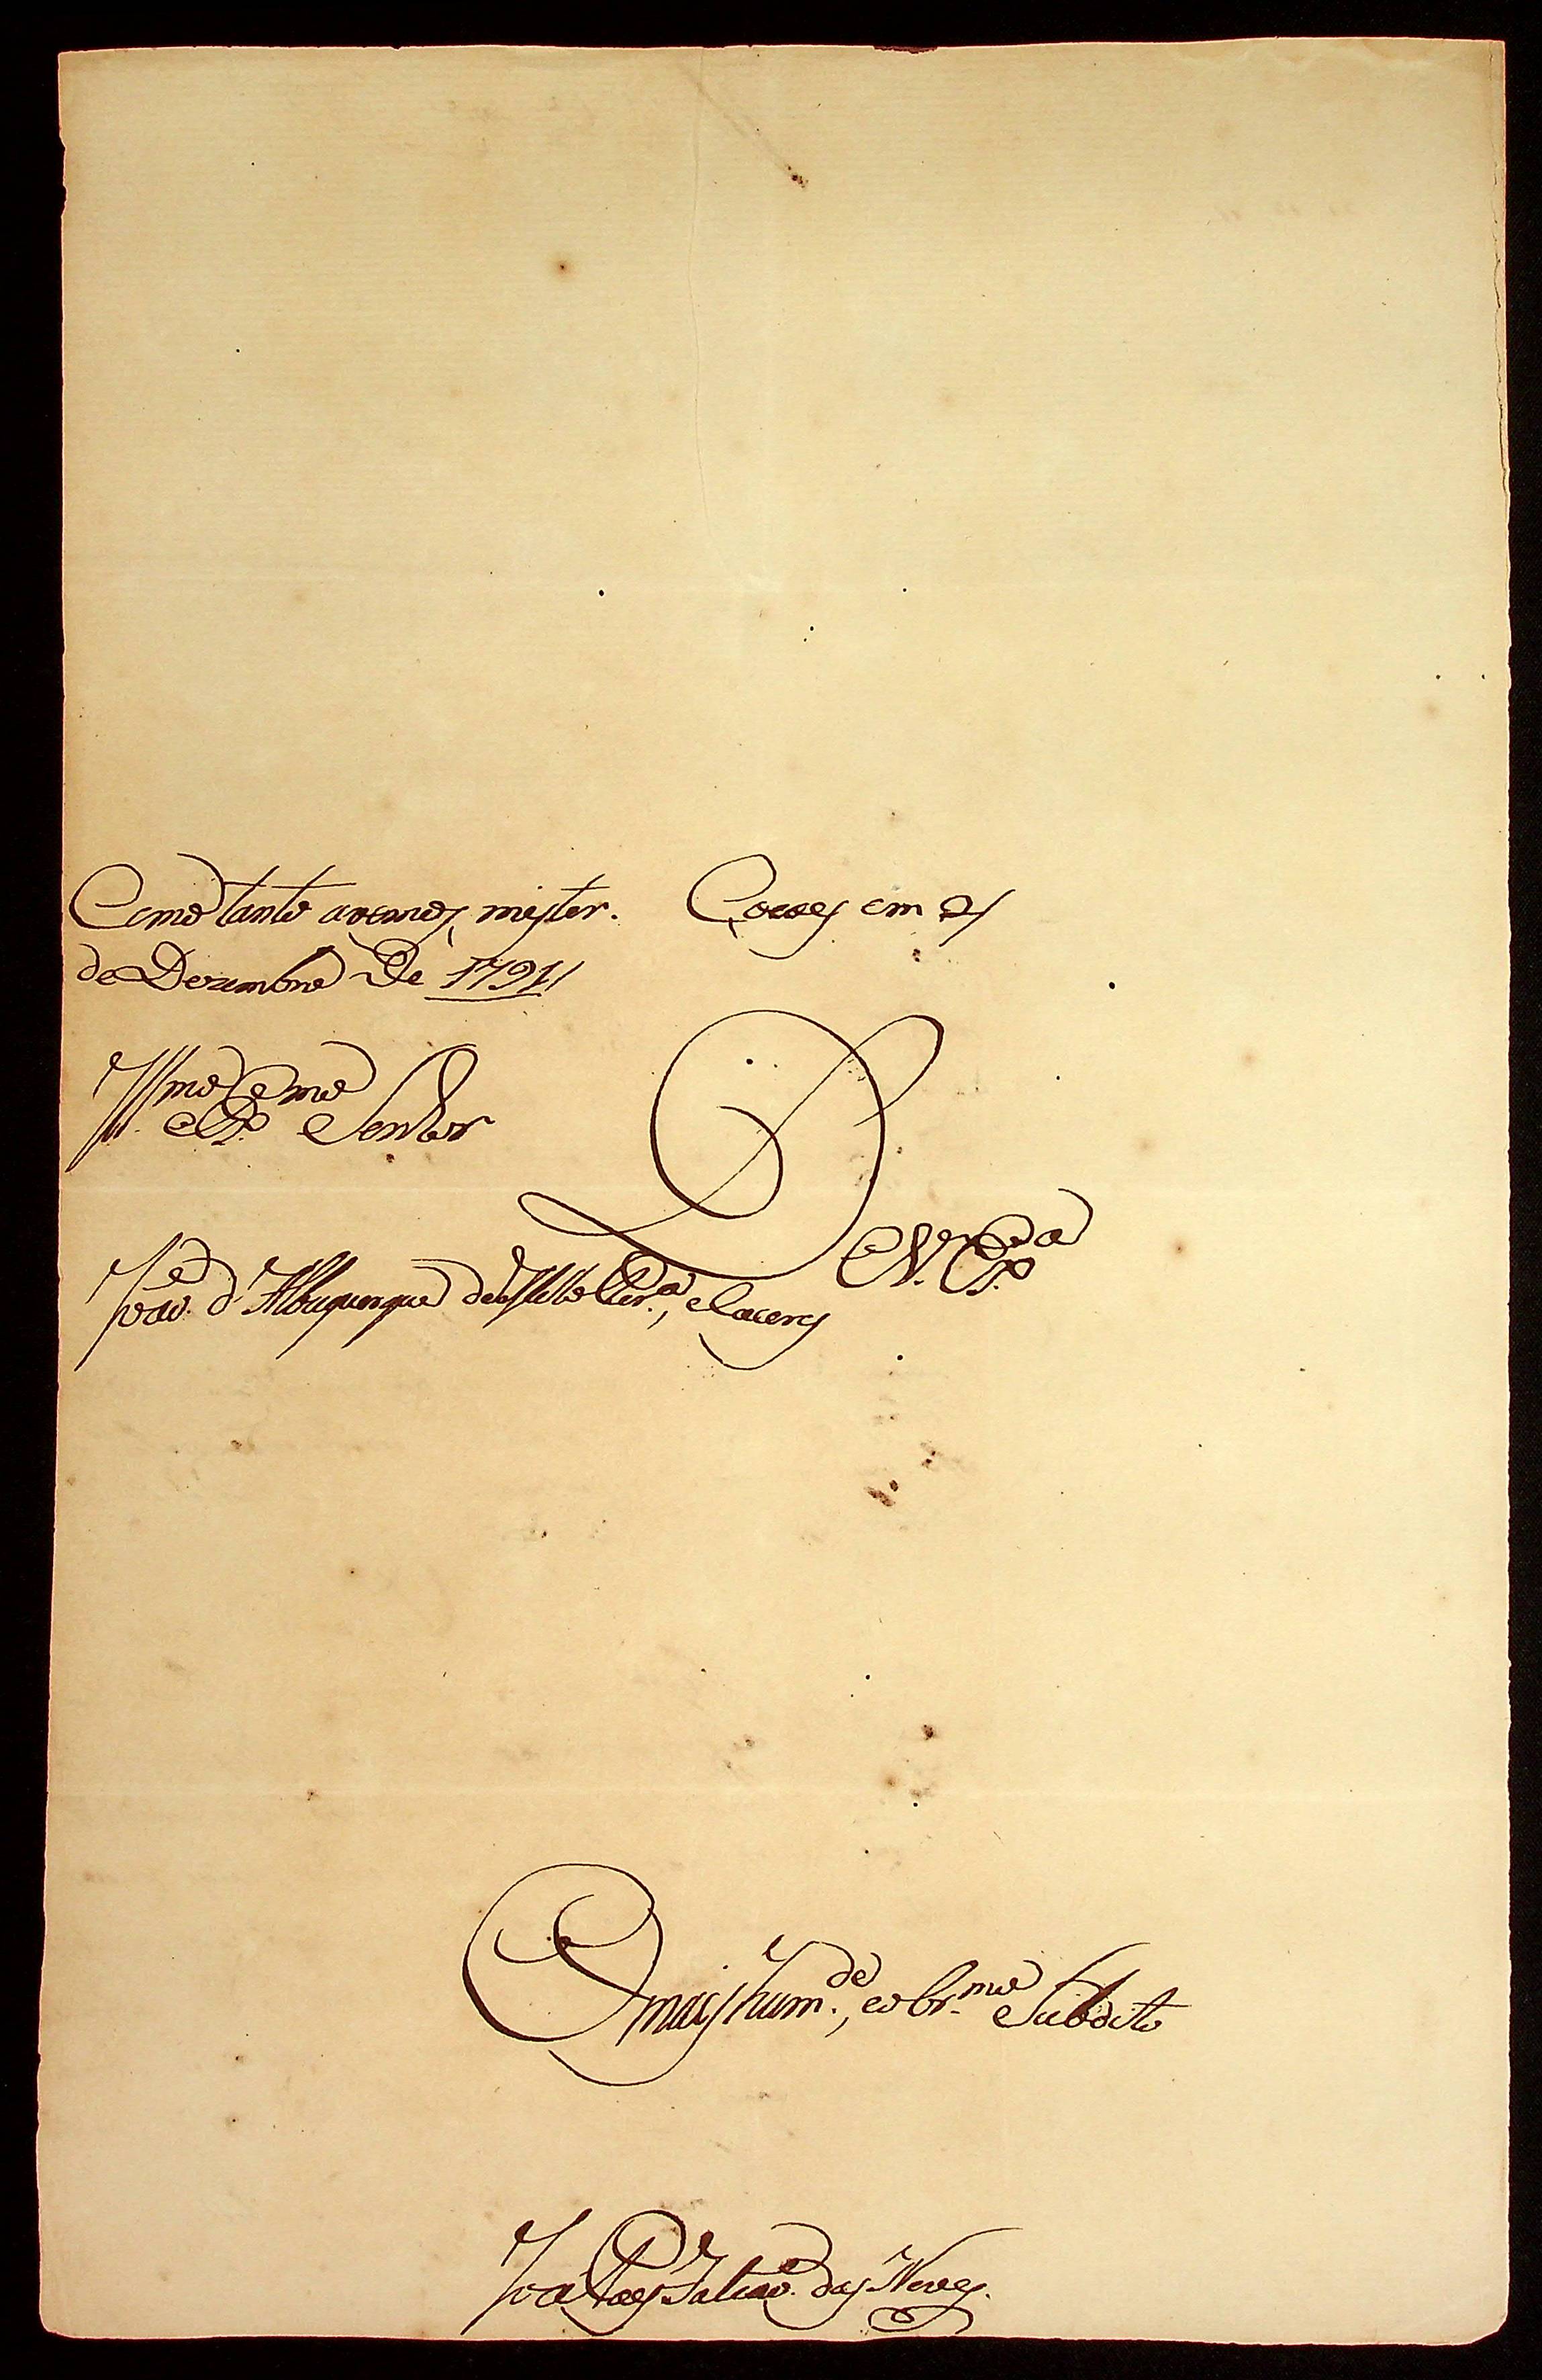 Como tanto avemos mister. Cocaes em 21
de Dezembro De 1791
Illmo Exmo Senhor
De V. Exa
João d'Albuquerque de Mello Pera, e Caceres
O mais humde, e obrmo Subdito
João Leite das Neves.